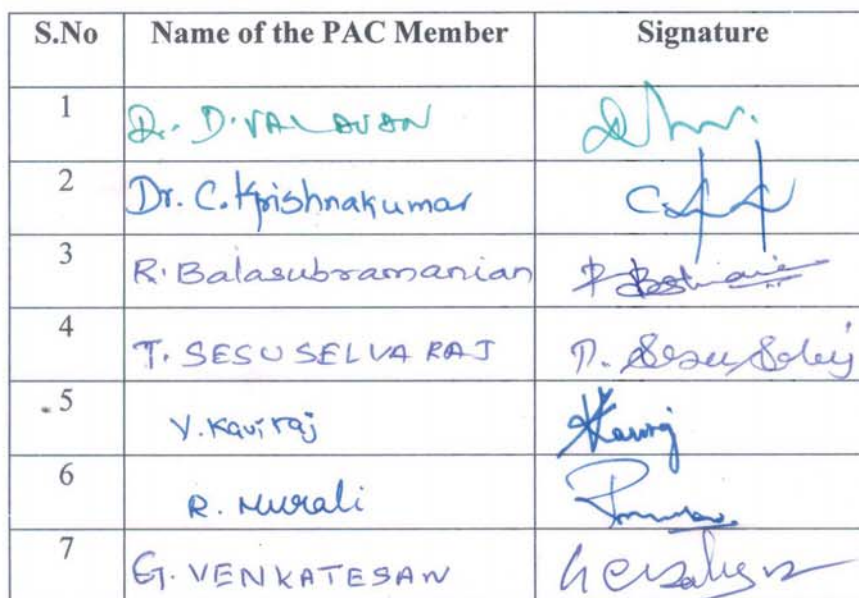 S.No Name of the PAC Member Signature
1 Dr. D. VALAVAN
2 Dr. C. Krishnakumar
3 R. Balasubramanian
4 T. SESU SELVA RAJ T. Sesu
5 V. Kaviraj
6 R. Murali
7 G. VENKATESAN